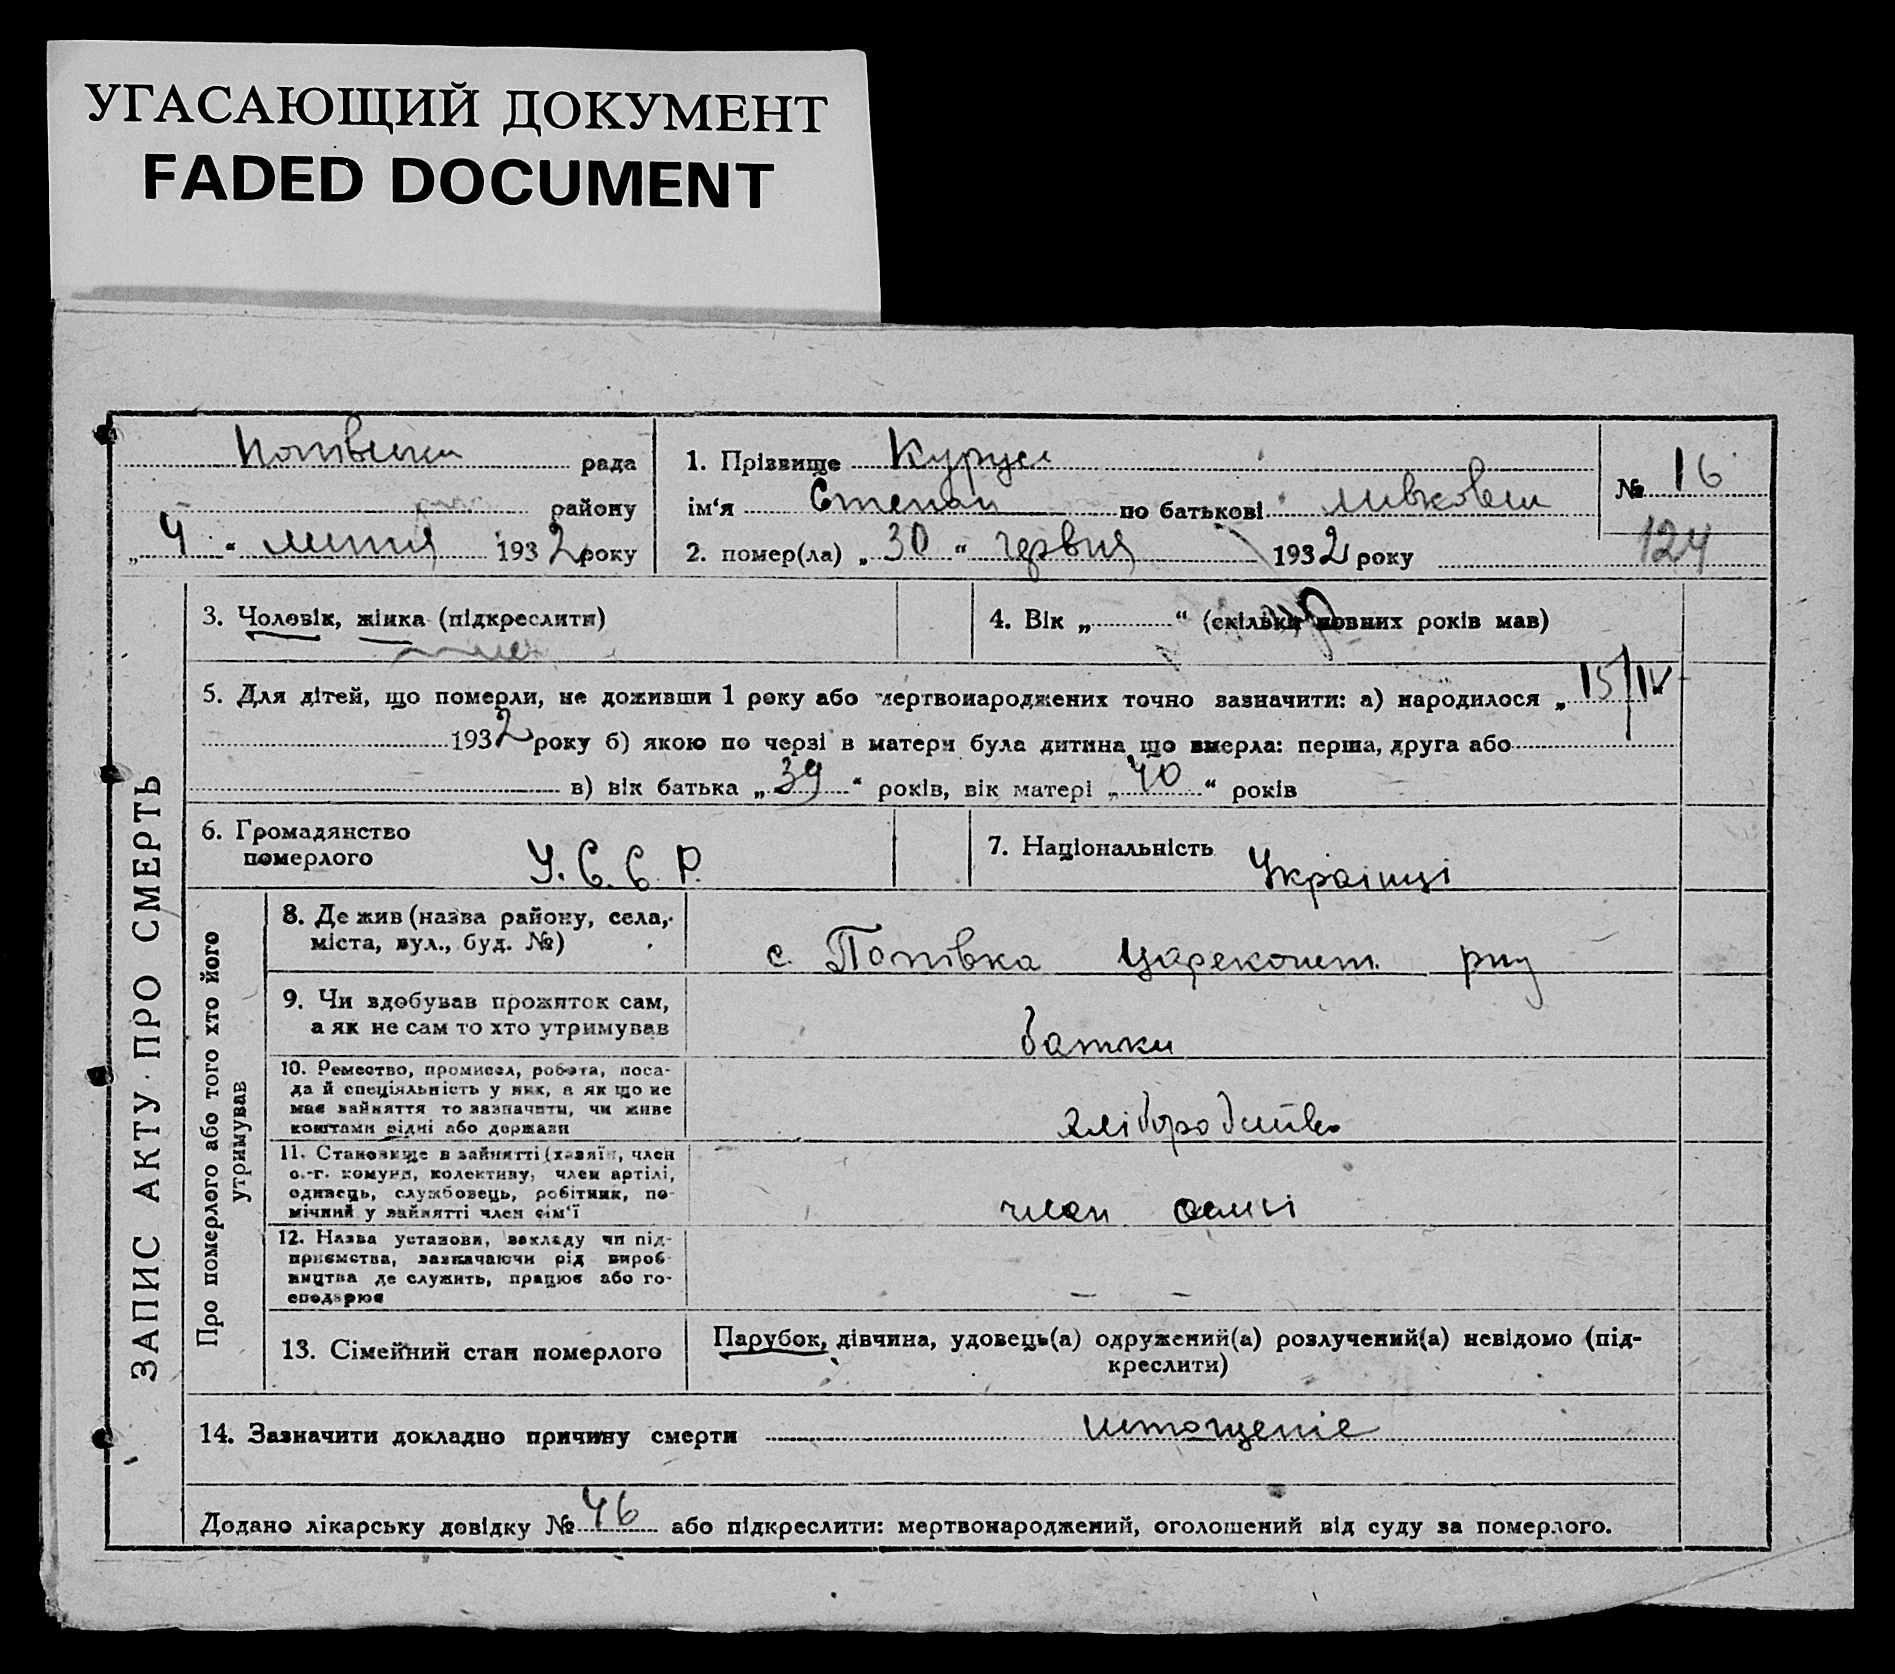 УГАСАЮЩИЙ ДОКУМЕНТ
FADED DOCUMENT
рада
району
„ 4 “ липня 1932 року
1. Прізвище Курус
ім'я Степан по батькові
2. помер(ла) „ 30 “ червня 1932 року
№ 16
124
ЗАПИС АКТУ ПРО СМЕРТЬ
3. Чоловік, жінка (підкреслити)
4. Вік „ “ (скільки повних років мав)
5. Для дітей, що померли, не доживши 1 року або мертвонароджених точно зазначити: а) народилося „ 15/IV
1932 року б) якою по черзі в матери була дитина що вмерла: перша, друга або
в) вік батька „ 39 “ років, вік матері „ 40 “ років
6. Громадянство
померлого
У. С. С. Р.
7. Національність
Українці
Про померлого або того хто його
утримував
8. Де жив (назва району, села,
міста, вул., буд. №)
с. Попівка Цареконст. рну
9. Чи вдобував прожиток сам,
а як не сам то хто утримував
батки
10. Ремество, промисел, робота, поса-
да й спеціяльність у них, а як що не
має зайняття то зазначити, чи живе
коштами рідні або держави
хлібородство
11. Становище в зайнятті (хазяїн, член
с.-г. комуни, колективу, член артілі,
одинець, службовець, робітник, по-
мічний у зайнятті член сім'ї
член
12. Назва установи, закладу чи під-
приємства, зазначаючи рід вироб-
ництва де служить, працює або го-
сподарює
— —
13. Сімейний стан померлого
Парубок, дівчина, удовець(а) одружений(а) розлучений(а) невідомо (під-
креслити)
14. Зазначити докладно причину смерти истощеніе
Додано лікарську довідку № 46 або підкреслити: мертвонароджений, оголошений від суду за померлого.